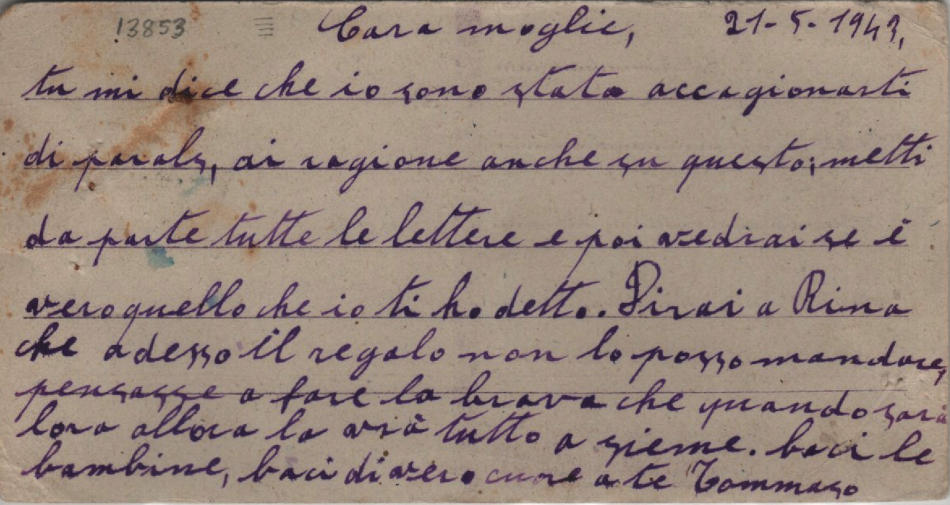 13853
Cara moglie, 21-5-1943,
tu mi dice che io sono stato accagionarti
di parols, ai ragione anche su questo; metti
da parte tutte le lettere e poi vedrai se è
vero quello che io ti ho detto. Dirai a Rina
che adesso il regalo non lo posso mandare,
pensasse a fare la brava che quando sara
lora allora la vrà tutto a sieme. baci le
bambine, baci di vero cuore a te Tommaso